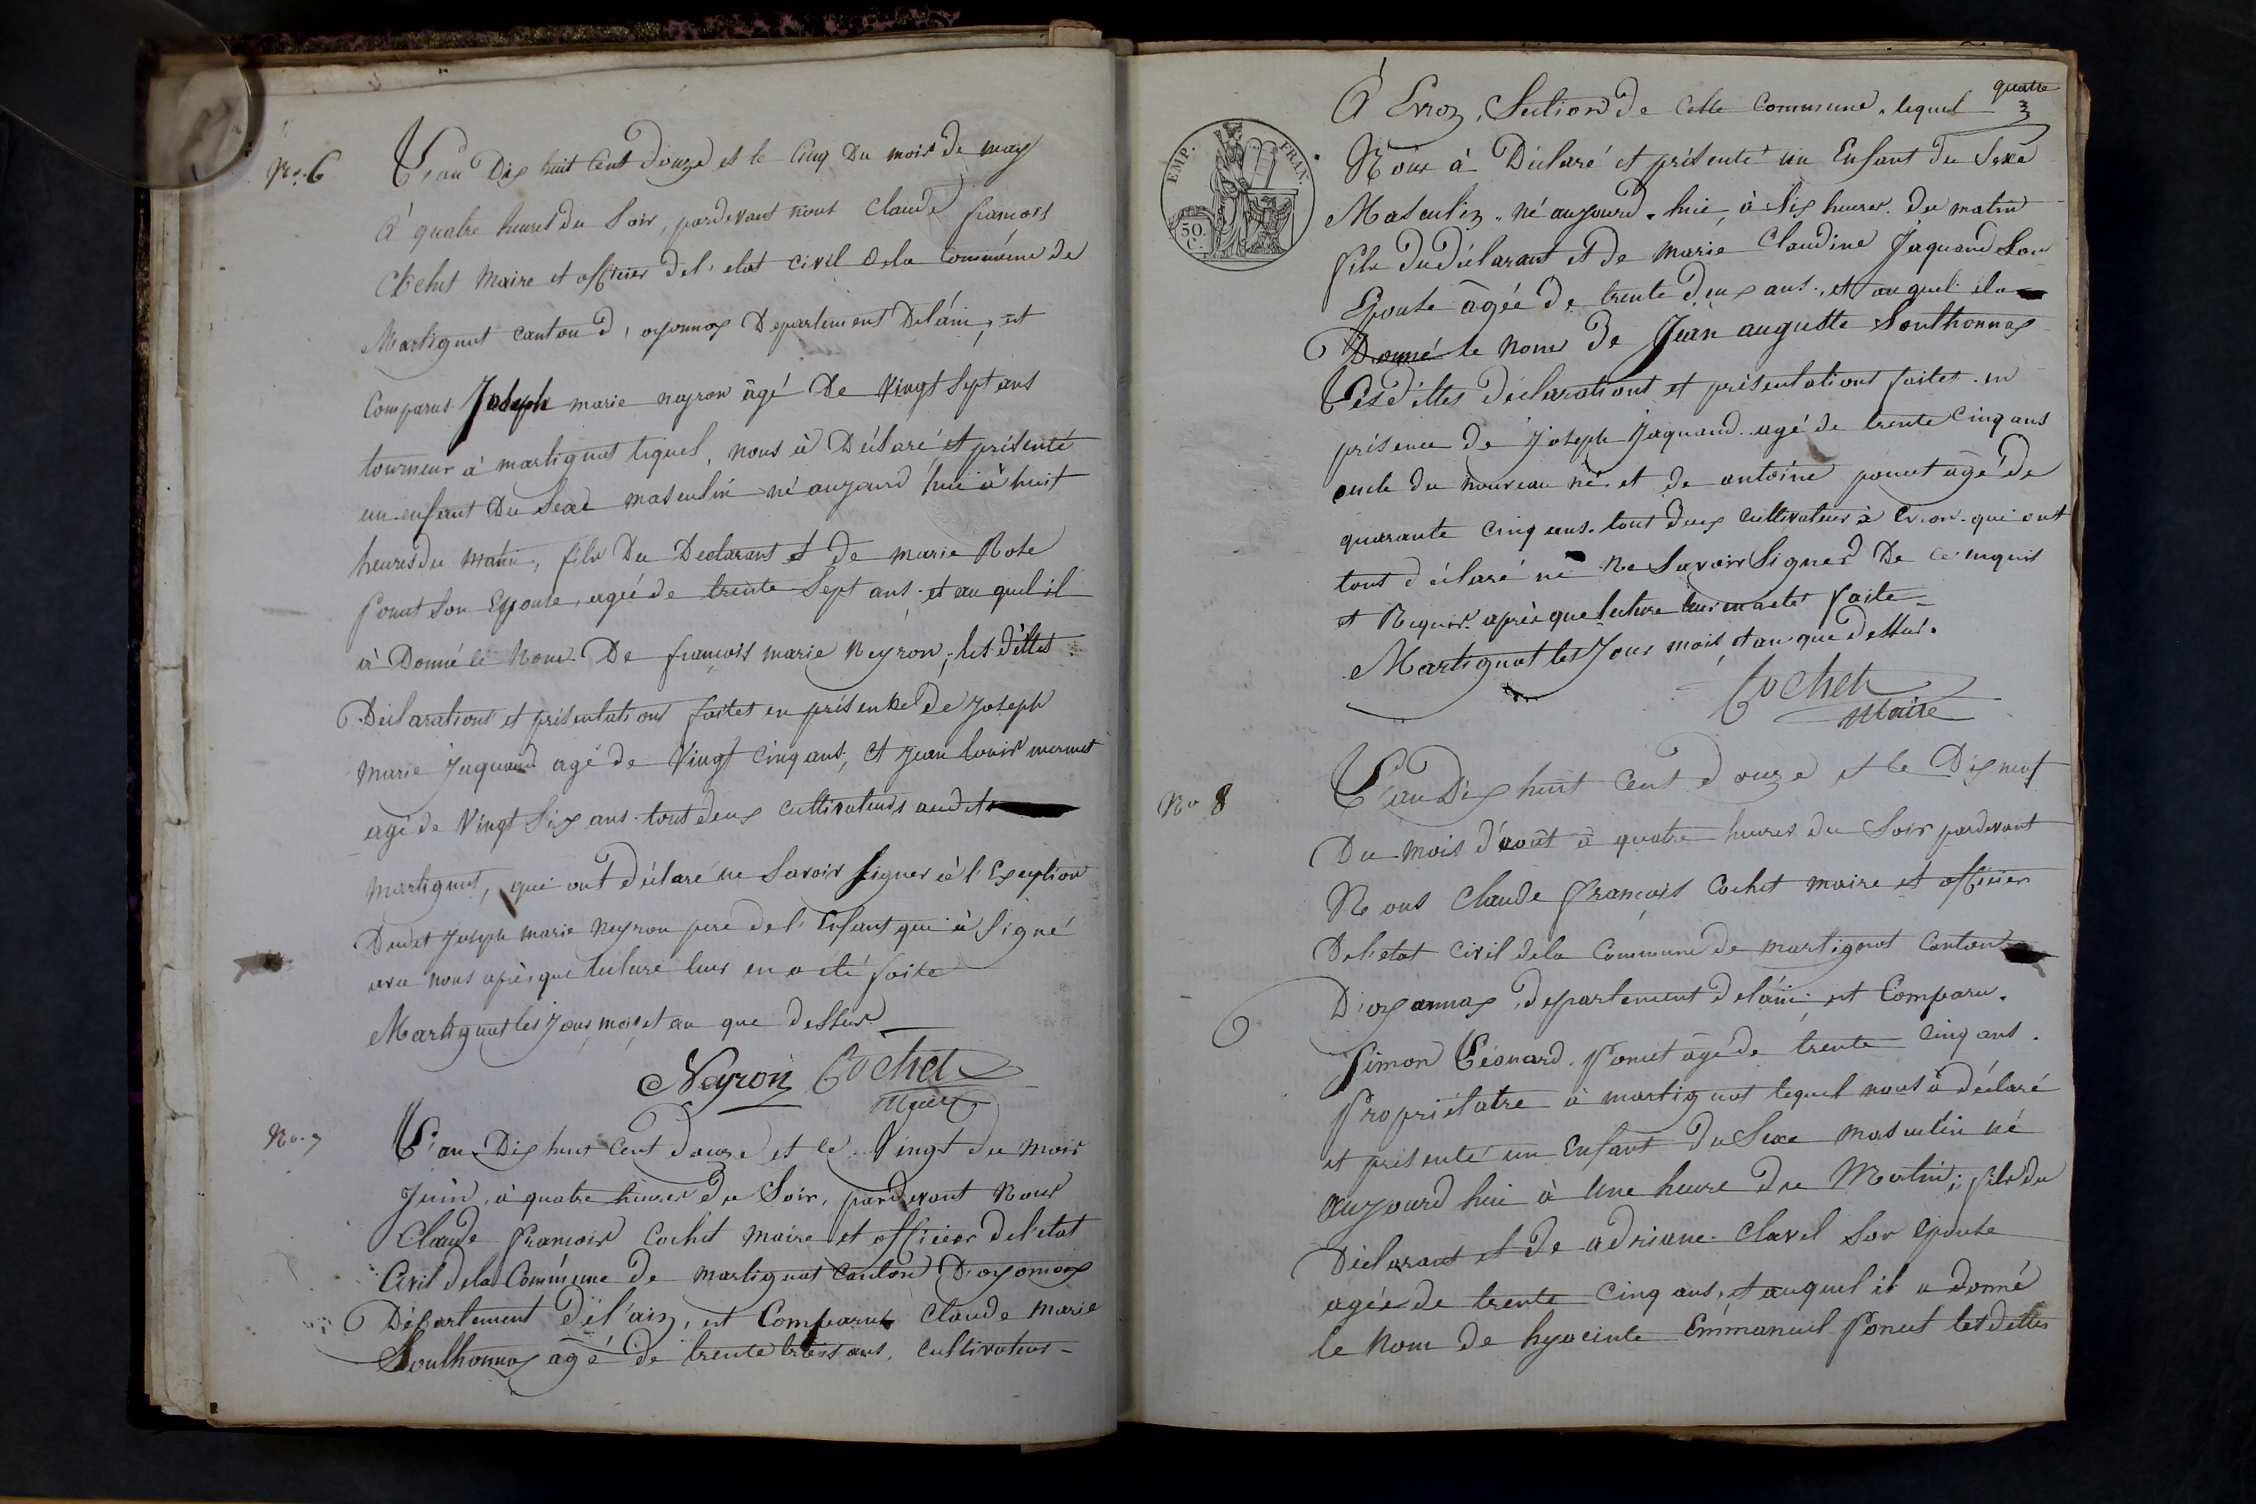 No. 6
L'an Dix huit Cent Douze et le Cinq Du mois de may
à quatre heures du Soir, pardevant nous Claude françois
Cochet Maire et officier del'etat civil dela Commune de
Martignat canton d'oyonnax Departement Delain, est
Comparus Joseph marie neyron âgé De Vingt Sept ans
tourneur à martignat lequel, nous à Déclaré et présenté
un enfant Du Sexe masculin né aujourd'hui à huit
heures du matin, fils Du Declarant et de marie Rose
Ponet Son Epouse, agée de trente Sept ans et au quel il
à Donné le Nom De françois marie Neyron, les dittes
Déclarations et présentations faites en présence De joseph
Marie Jaquand agé de Vingt Cinq ans, et jean louis mermet
agé de Vingt Six ans tout deux cultivateurs audit
martignat, qui ont déclaré ne Savoir Signer à l'Exeption
Dudit Joseph marie Neyron pere del'Enfant qui à Signé
avec nous après que lecture leur en a été faite
Martignat les Jour, mois, et an que dessus
Neyron Cochet
Maire
No. 7
L'an Dix huit Cent Douze et le Vingt du mois
Juin, à quatre heures Du Soir, pardevant Nous
Claude François Cochet Maire et officier del'etat
Civil dela Commune de martignat canton D'oyonnax
Département del'ain, est Comparus Claude Marie
Southonnax agé de trente trois ans, Cultivateur
quatre
3
À Evroz, Section De Cette Commune, lequel
Nous à Déclaré et présenté un Enfant Du Sexe
Masculin, né aujourd'hui, à Six heures du matin
fils Du Déclarant et De marie Claudine Jaquand Son
Epouse âgée De trente Deux ans, et auquel il a
Donné le nom De Jean auguste Southonnax
Lesdittes déclarations et présentations faites en
présence de Joseph Jaquand agé de trente Cinq ans
oncle du nouveau né et De antoine ponet âgé De
quarante cinq ans tout deux cultivateur à Evron qui ont
tout déclaré ne Savoir Signer De ce enquis
et Requis après que lecture leur en a été faite
Martignat les Jour mois et an que dessus.
Cochet
Maire
EMP. FRAN.
50.
C.
No 8
L'an Dix huit Cent douze et le Dix neuf
Du mois d'août à quatre heures du Soir pardevant
Nous Claude François Cochet maire et officier
Del'etat Civil dela Commune de martignat Canton
D'oyonnax, departement delain, est Comparu.
Simon Léonard Ponet âgé de trente Cinq ans.
Propriétaire à martignat lequel nous à déclaré
et présenté un Enfant du Sexe masculin né
aujourd'hui à Une heure du Matin, fils du
Déclarant et De adriane Clavel Son Epouse
agée de trente Cinq ans, et auquel il a donné
le Nom de hyacinte Emmanuel Ponet lesdittes